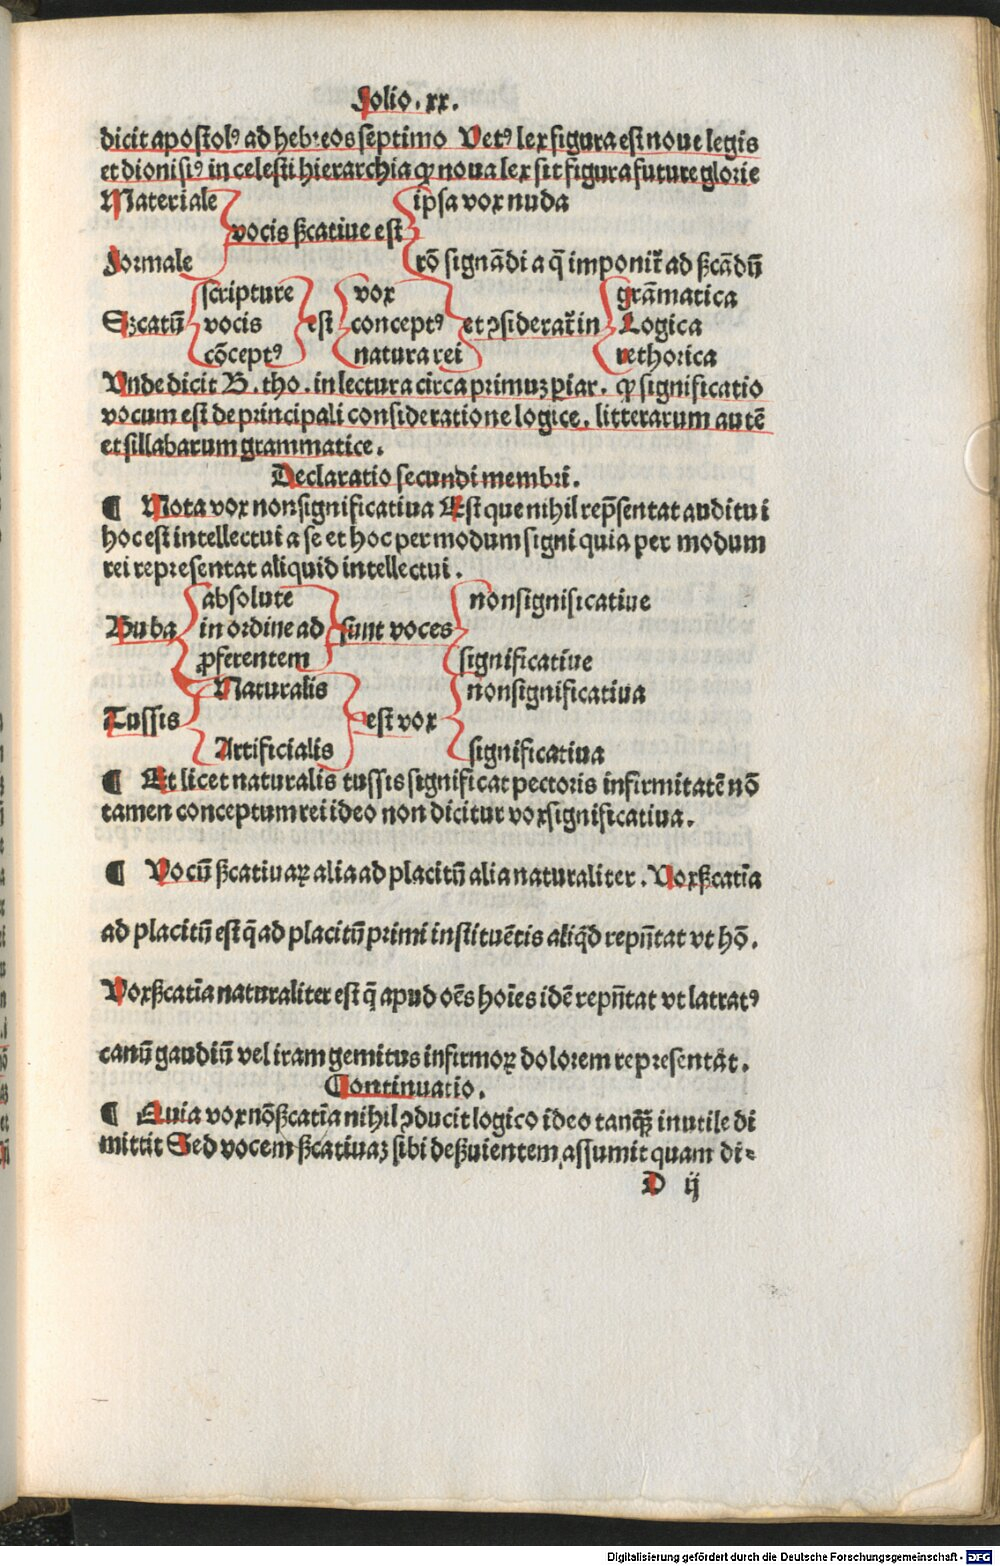 Folio. xx.
dicit apostolꝰ ad hebreos septimo Vetꝰ lex figura est noue legis
et dionisiꝰ in celesti hierarchia ꝙ noua lex sit figura future glorie
Materiale ipsa vox nuda
vocis ßcatiue est
Formale rō signādi a q̄ imponit̄ ad ßcādū
scripture vox grāmatica
Sꝫcatū vocis est conceptꝰ et ꝯsiderat̄ in Logica
cōceptꝰ natura rei rethorica
Vnde dicit B. tho. in lectura circa primuꝫ ꝑiar. ꝙ significatio
vocum est de principali consideratione logice. litterarum autē
et sillabarum grammatice.
Declaratio secundi membri.
¶ Nota vox nonsignificatiua Est que nihil rep̄sentat auditui
hoc est intellectui a se et hoc per modum signi quia per modum
rei representat aliquid intellectui.
absolute nonsignificatiue
Bu ba in ordine ad sunt voces
ꝓferentem significatiue
Naturalis nonsignificatiua
Tussis est vox
Artificialis significatiua
¶ Et licet naturalis tussis significat pectoris infirmitatē nō
tamen conceptum rei ideo non dicitur vox significatiua.
¶ Vocū ßcatiuaꝝ alia ad placitū alia naturaliter. Vox ßcatīa
ad placitū est q̄ ad placitū primi instituētis aliq̄d repn̄tat vt hō.
Vox ßcatīa naturaliter est q̄ apud oēs hoīes idē repn̄tat vt latratꝰ
canū gaudiū vel iram gemitus infirmoꝝ dolorem representāt.
Continuatio.
¶ Quia vox nōßcatīa nihil ꝯducit logico ideo tanꝙ̄ inutile di
mittit Sed vocem ßcatiuaꝫ sibi deßuientem assumit quam di⸗
D ij
Digitalisierung gefördert durch die Deutsche Forschungsgemeinschaft - DFG